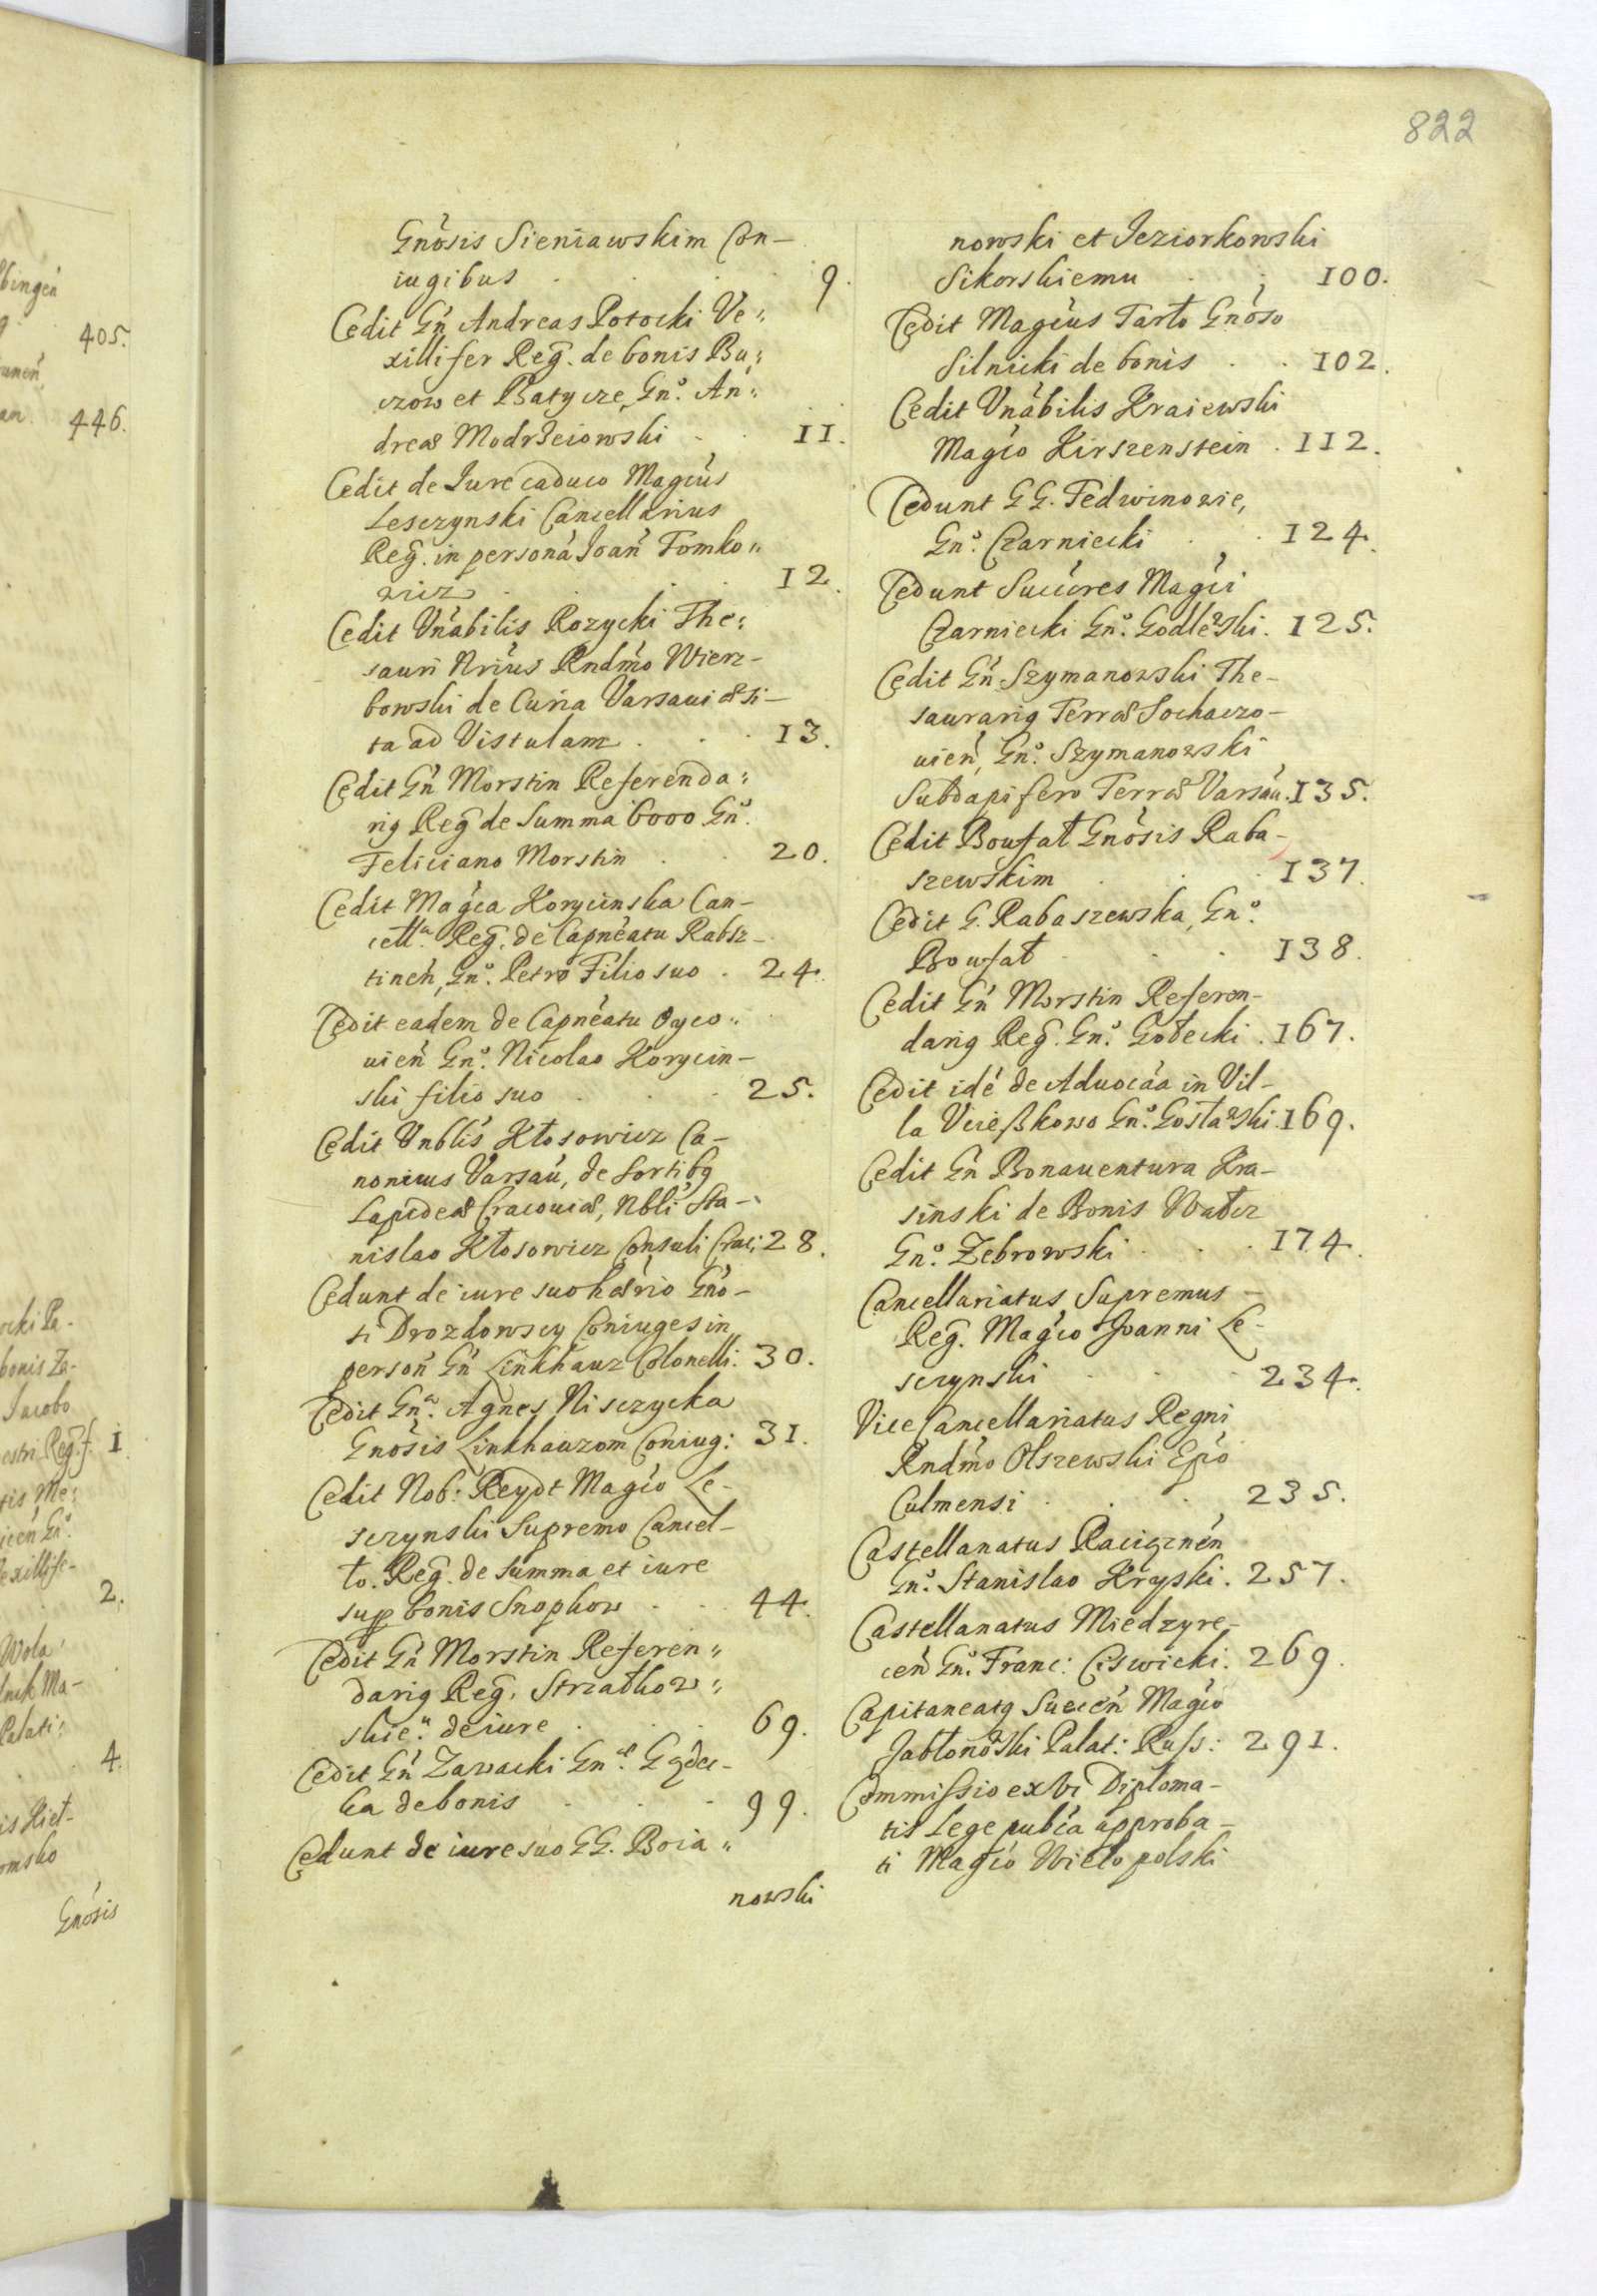 822
Gnósis Sieniawskim Con-
iugibus . 9.
Cedit Gń Andreas Potocki Ve„
xillifer Reg̃. de bonis Bu„
czow et Batycze, Gn͂o. An„
dreæ Modrzeiowski . . 11.
Cedit de Iure caduco Magcius
Lesczynski Cancellarius
Reg̃. in persona Ioań Tomko„
wicz . . . 12.
Cedit Vnábilis Rozycki The„
sauri Nrius Rndmo Wierz-
bowski de Curia Varsauiæ si-
ta ad Vistulam . . . 13.
Cedit Gń Morstin Referenda„
rig Reg̃ de Summa 6000 Gno.
Feliciano Morstin . . 20.
Cedit Magca Korycinska Can-
cella. Reg̃. de Capneatu Rabsz-
tineń, Gno. Petro Filio suo . 24.
Cedit eadem de Capneatu Oyco„
uień Gno. Nicolao Korycin-
ski filio suo . . . 25.
Cedit Vnblis Kłosowicz Ca-
nonicus Varsau, de sortibg
Lapideæ Cracouiæ, Nbli Sta-
nislao Kłosowicz Consuli Crac: 28.
Cedunt de iure suo hærio Gno-
si Drozdowscy Coniuges in
person Gń Linkhauz Colonelli. 30.
Cedit Gna. Agnes Nisczycka
Gnosis Linkhauzom Coniug: 31.
Cedit Nob: Reydt Magco Le-
sczynski Supremo Cancel-
lo. Reg̃. de summa et iure
sup bonis Snopkow . . 44.
Cedit Gń Morstin Referen„
darig Reg̃. Strzałkow„
skie. de iure . . . 69.
Cedit Gń Zawacki Gnæ
ka de bonis . . . 99.
Cedunt de iure suo GG. Boia„
nowski
nowski et Ieziorkowski
Sikorskiemu . . 100.
Cedit Magcus Tarło Gnoso
Silnicki de bonis . . 102.
Cedit Vnábilis Kraiewski
Magco Kirszenstein . 112.
Cedunt GG. Fedwinowie,
Gno. Czarniecki . . 124.
Cedunt Succores Magci
Czarniecki Gno. Godlewski. 125.
Cedit Gń Szymanowski The-
saurarig Terræ Sochaczo-
uień, Gno. Szymanowski
Subdapifero Terræ Varsau. 135.
Cedit Boufał Gnosis Raba-
szewskim . . . 137.
Cedit G. Rabaszewska, Gno.
Boufał . . . 138.
Cedit Gń Morstin Referen-
darig Reg̃. Gno. Gołecki . 167.
Cedit idé de Aduocáa in Vil-
la Vcießkowo Gno. Gosławski. 169.
Cedit Gń Bonauentura Kra-
sinski de Bonis
Gno. Zebrowski . . . 174.
Cancellariatus Supremus
Reg̃. Magco Joanni Le-
sczynski . . . 234.
Vice Cancellariatus Regni
Rndmo Olszewski Epo
Culmensi . . . 235.
Castellanatus Raciązneń
Gno. Stanislao Kryski. 257.
Castellanatus Miedzyre-
ceń Gno. Franc: Ciswicki. 269.
Capitaneatg Sueceń Magco
Jabłonowski Palat: Russ: 291.
Commissio ex vi Diploma-
tis Lege publca approba-
ti Magco Wielopolski
405.
446.
ocki Pa-
bonis Za-
Jacobo
estri Reg̃. f. 1.
tis Me:
2.
Wola
lnik Ma-
Palati:
4.
is Kieł-
omsko
Gnósis